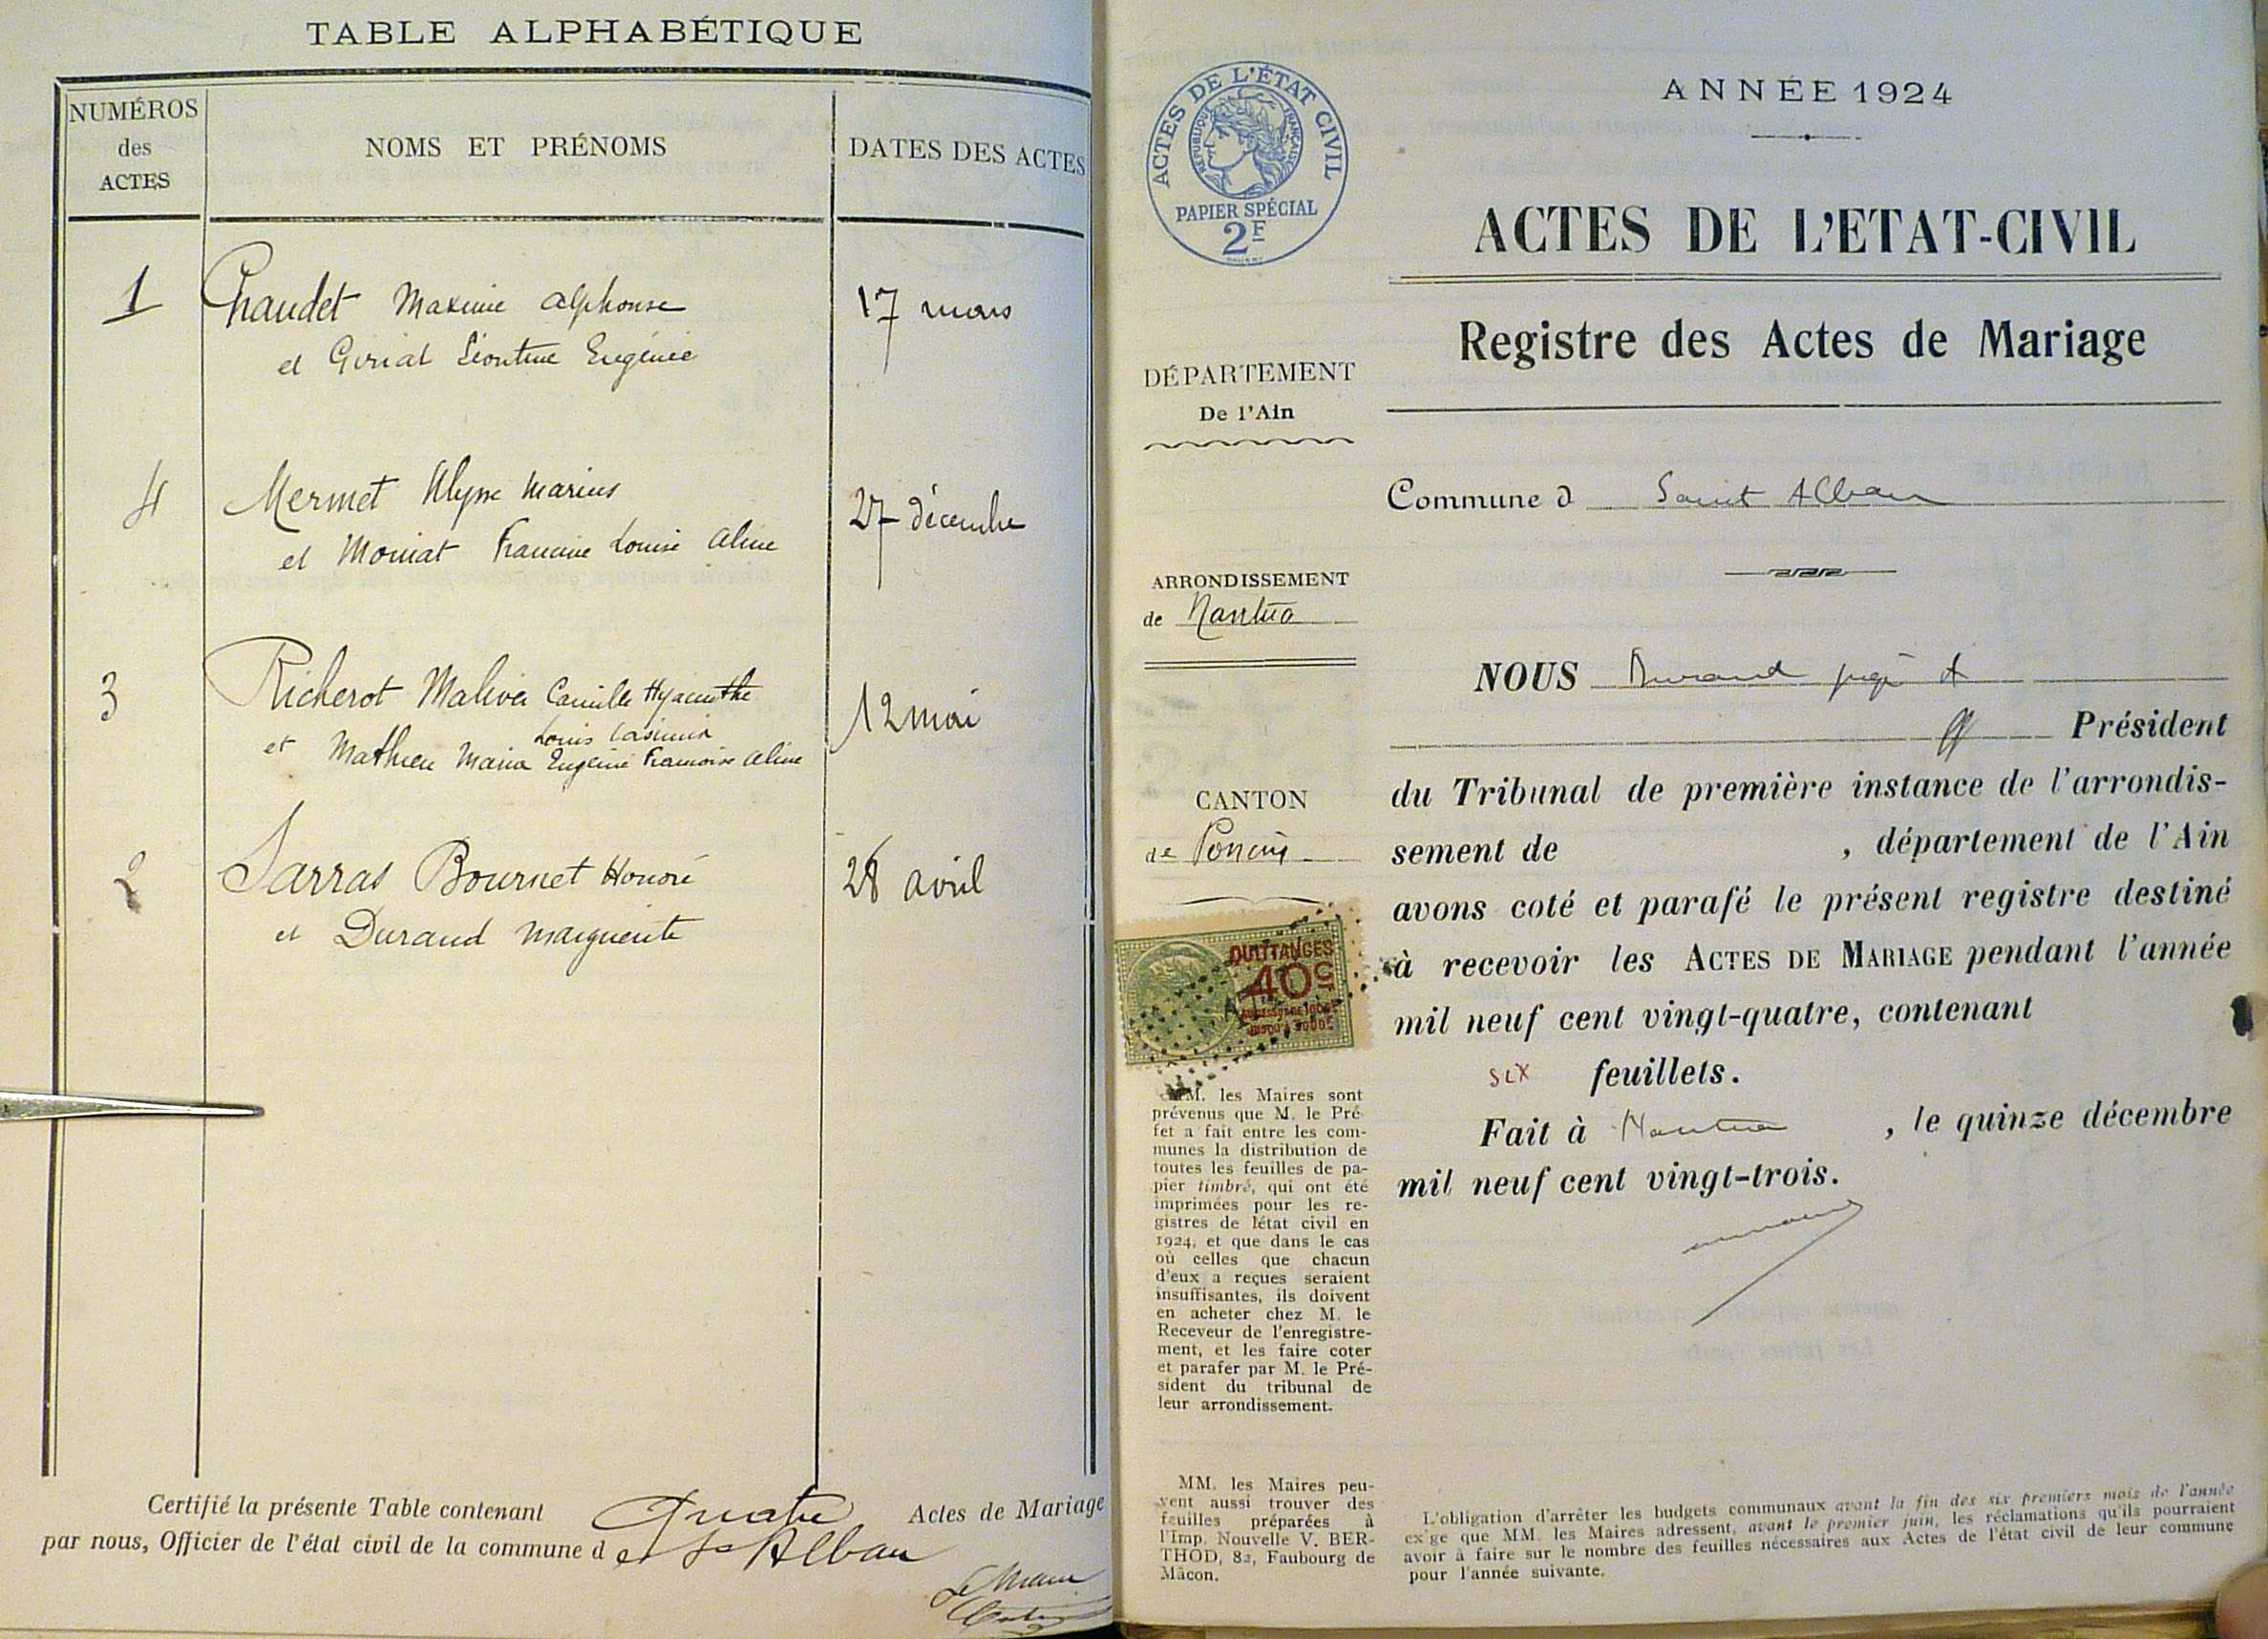 TABLE ALPHABÉTIQUE
NUMÉROS
des
ACTES
NOMS ET PRÉNOMS
DATES DES ACTES
1
Chaudet Maxime Alphonse
17 mars
et Goriat Léontine Eugénie
4
Mermet Ulysse Marius
27 décembre
et Moniat Francine Louise Aline
3
Richerot Malivet Camille Hyacinthe
Louis Casimir
12 mai
et Mathieu Maria Eugénie Françoise Aline
2
Sarras Bournet Honoré
28 avril
et Durand Marguerite
Certifié la présente Table contenant Quatre Actes de Mariage
par nous, Officier de l'état civil de la commune d e St Alban
Le Maire
ACTES DE L'ÉTAT CIVIL
RÉPUBLIQUE FRANÇAISE
PAPIER SPÉCIAL
2F
DÉPARTEMENT
De l'Ain
ARRONDISSEMENT
de Nantua
CANTON
de Poncin
QUITTANCES
40c
MM. les Maires sont
prévenus que M. le Pré-
fet a fait entre les com-
munes la distribution de
toutes les feuilles de pa-
pier timbré, qui ont été
imprimées pour les re-
gistres de l'état civil en
1924, et que dans le cas
où celles que chacun
d'eux a reçues seraient
insuffisantes, ils doivent
en acheter chez M. le
Receveur de l'enregistre-
ment, et les faire coter
et parafer par M. le Pré-
sident du tribunal de
leur arrondissement.
MM. les Maires peu-
vent aussi trouver des
feuilles préparées à
l'Imp. Nouvelle V. BER-
THOD, 82, Faubourg de
Mâcon.
ANNÉE 1924
ACTES DE L'ETAT-CIVIL
Registre des Actes de Mariage
Commune d Saint Alban
NOUS Durand juge
Président
du Tribunal de première instance de l'arrondis-
sement de , département de l'Ain
avons coté et parafé le présent registre destiné
à recevoir les ACTES DE MARIAGE pendant l'année
mil neuf cent vingt-quatre, contenant
six feuillets.
Fait à Nantua , le quinze décembre
mil neuf cent vingt-trois.
L'obligation d'arrêter les budgets communaux avant la fin des six premiers mois de l'année
exige que MM. les Maires adressent, avant le premier juin, les réclamations qu'ils pourraient
avoir à faire sur le nombre des feuilles nécessaires aux Actes de l'état civil de leur commune
pour l'année suivante.